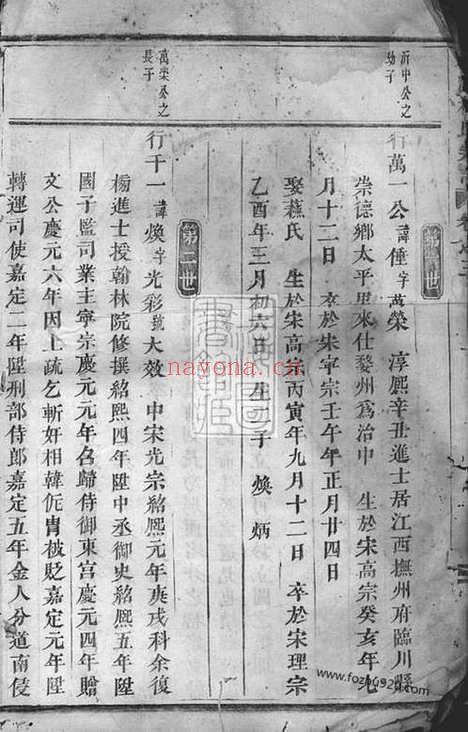 沂中公之
幼子
行萬一公諱倕字萬榮 淳熙辛丑進士居江西撫州府臨川縣
崇德鄉太平里來仕婺州爲治中 生於宋高宗癸亥年九
月十二日 卒於宋寧宗壬午年正月廿四日
娶蘓氏 生於宋高宗丙寅年九月十二日 卒於宋理宗
乙酉年三月初六日 生二子 煥 炳
第二世
萬榮公之
長子
行千一諱煥字光彩號大效 中宋光宗紹熙元年庚戌科余復
榜進士授翰林院修撰紹熙四年陞中丞御史紹熙五年陞
國子監司業主寧宗慶元元年召歸侍御東宮慶元四年贈
文公慶元六年因上疏乞斬奸相韓侂胄被貶嘉定元年陞
轉運司使嘉定二年陞刑部侍郎嘉定五年金人分道南侵
nayona.cn
www.fozhu920.com